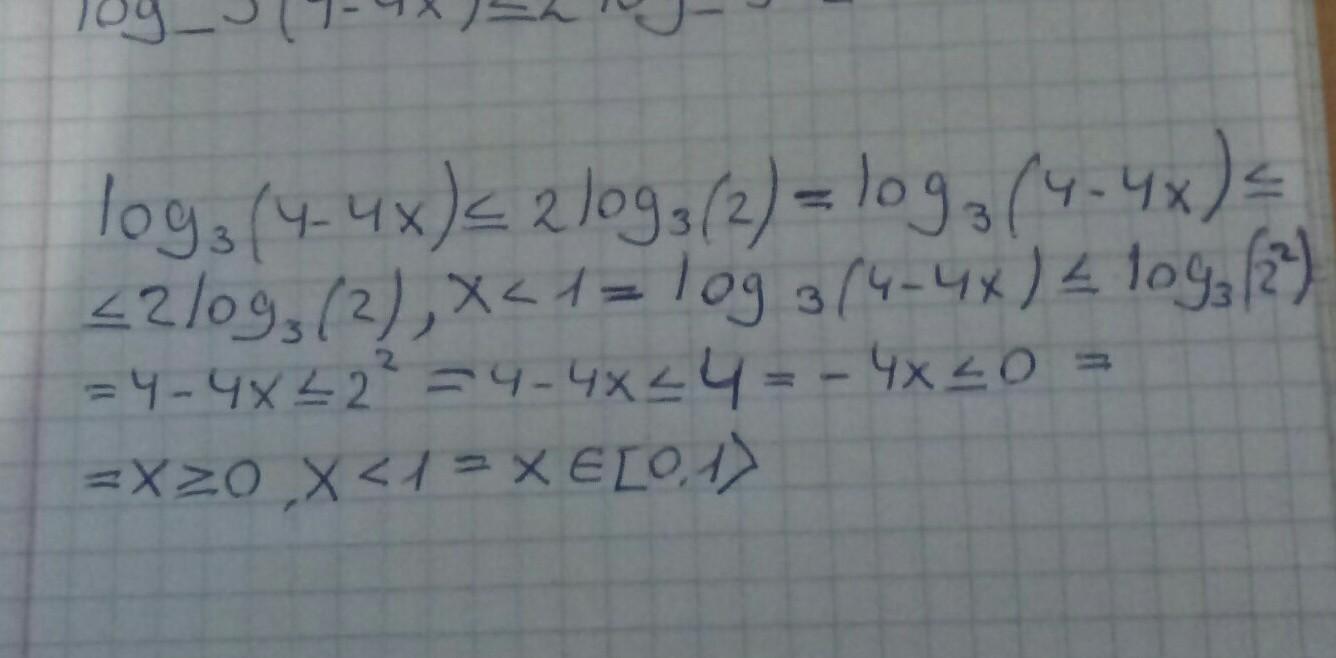 log_3(4-4x)≤2log_3
log₃(4-4x)≤2log₃(2)=log₃(4-4x)≤
≤2log₃(2),x<1=log₃(4-4x)≤log₃(2²)
=4-4x≤2²=4-4x≤4=-4x≤0=
=x≥0,x<1=x∈[0,1⟩